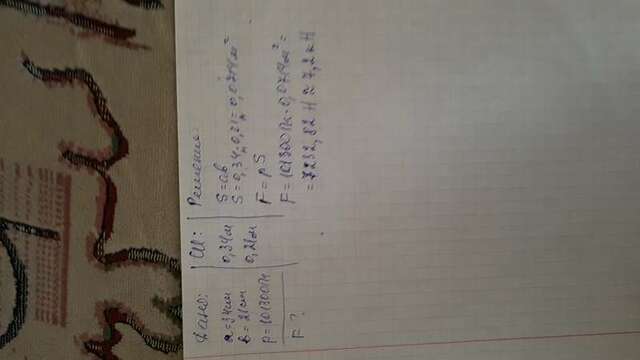 Дано:
a = 34см
b = 21см
p = 101300Па
F - ?
СИ:
0,34м
0,21м
Решение:
S = ab
S = 0,34м·0,21м = 0,0714м²
F = pS
F = 101300Па · 0,0714м² =
= 7232,82 Н ≈ 7,2 кН